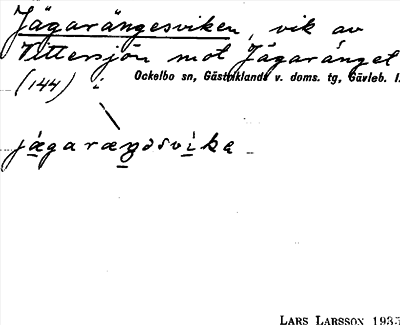 Jägarängesviken, vik av
Vittersjön mot Jägaränget
(144) Ockelbo sn, Gästriklands v. doms. tg, Gävleb. l.
jägaræŋəsvika
LARS LARSSON 1935